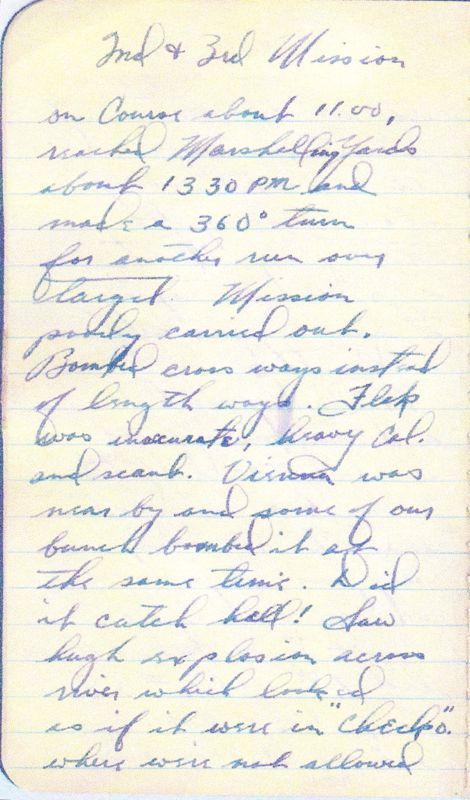 2nd & 3rd Mission
on Course about 11.00,
reached Marshelling Yards
about 1330 PM and
made a 360° turn
for another run over
target. Mission
poorly carried out.
Bombed cross ways instead
of length ways. Flak
was inaccurate, heavy Cal.
and scant. Vienna was
near by and some of our
bunch bombed it at
the same time. Did
it catch hell! Saw
hugh explosion across
river which looked
as if it were in "Checko".
where were not allowed